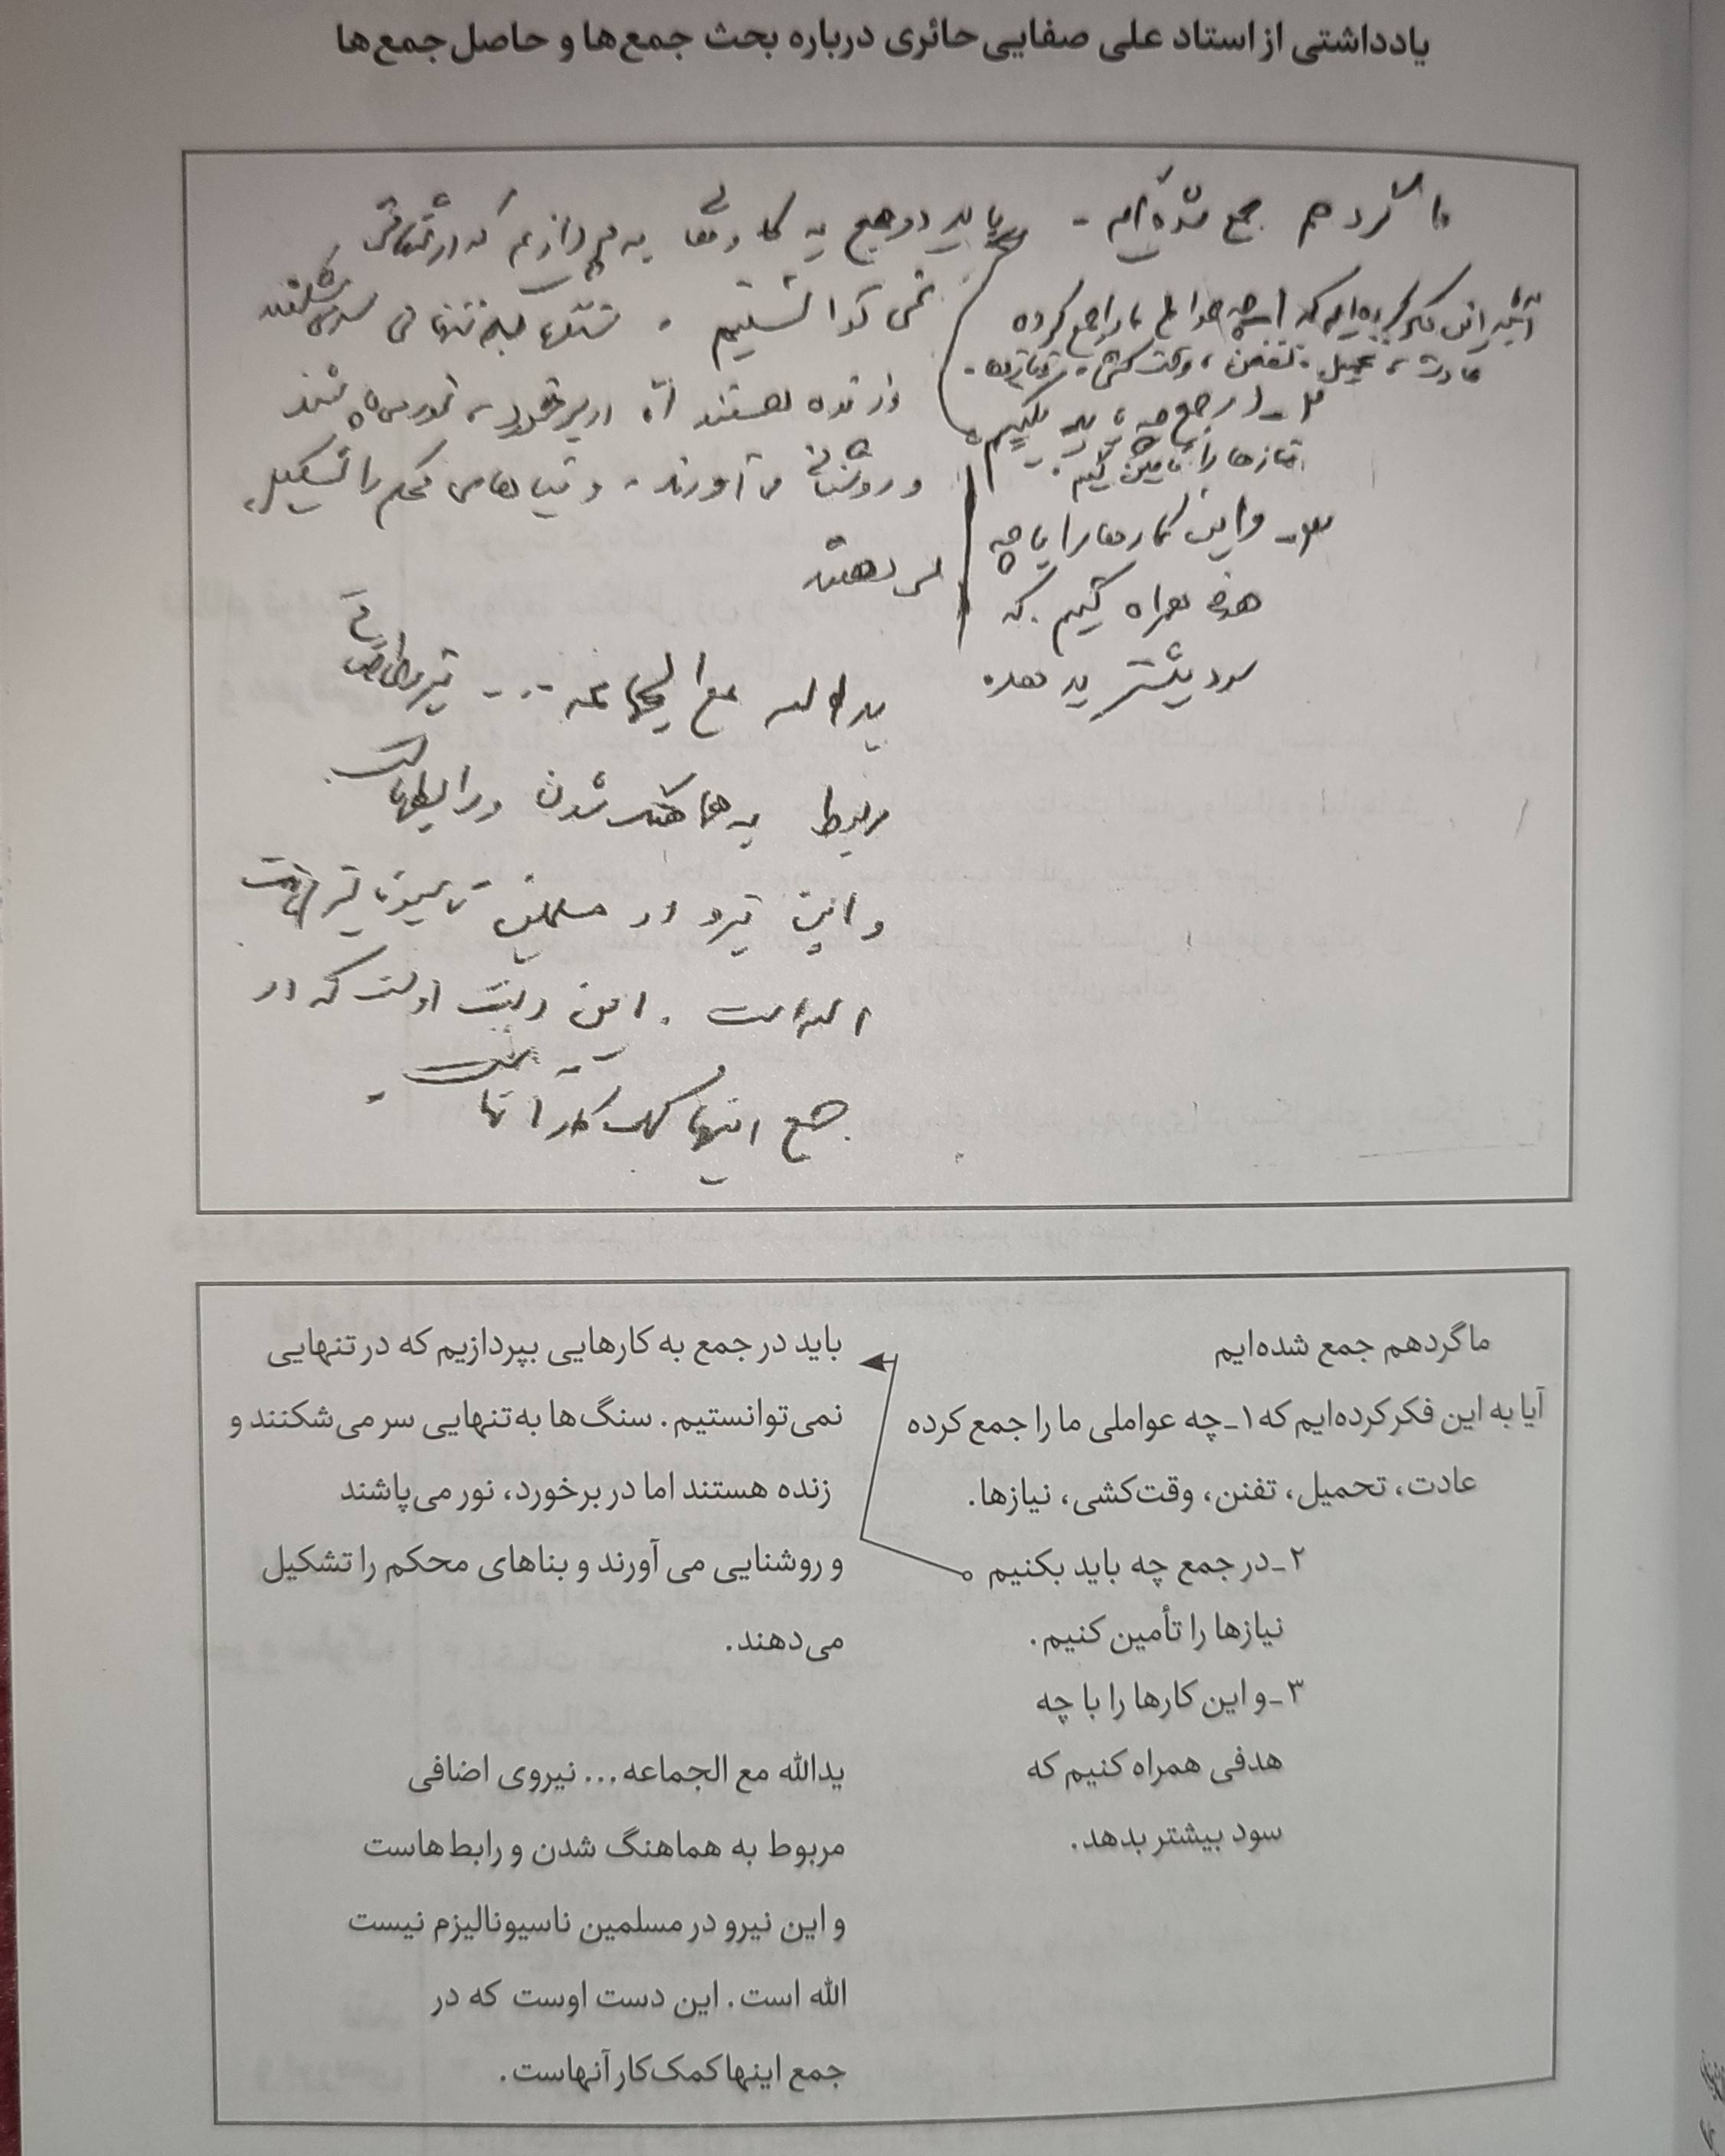 یادداشتی از استاد علی صفایی حائری درباره بحث جمع‌ها و حاصل جمع‌ها
ما گرد هم جمع شده‌ایم -
آیا به این فکر کرده‌ایم که ۱- چه عواملی ما را جمع کرده
عادت، تحمیل، تفنن، وقت کشی، نیازها.
۲- در جمع چه باید بکنیم
نیازها را تامین کنیم.
۳- و این کارها را با چه
هدفی همراه کنیم که
سود بیشتر بدهد.
باید در جمع به کارهایی بپردازیم که در تنهایی
نمی‌توانستیم. سنگها به تنهایی سر می‌شکنند
و زنده هستند اما در برخورد، نور می‌پاشند
و روشنایی می‌آورند و بناهای محکم را تشکیل
می‌دهند
یدالله مع الجماعه... نیروی اضافی
مربوط به هماهنگ شدن و رابطهاست
و این نیرو در مسلمین ناسیونالیزم نیست
الله است. این دست اوست که در
جمع اینها کمک کار آنهاست.
ما گرد هم جمع شده‌ایم
آیا به این فکر کرده‌ایم که ۱ـ چه عواملی ما را جمع کرده
عادت، تحمیل، تفنن، وقت‌کشی، نیازها.
۲ـ در جمع چه باید بکنیم
نیازها را تأمین کنیم.
۳ـ و این کارها را با چه
هدفی همراه کنیم که
سود بیشتر بدهد.
باید در جمع به کارهایی بپردازیم که در تنهایی
نمی‌توانستیم. سنگ‌ها به‌تنهایی سر می‌شکنند و
زنده هستند اما در برخورد، نور می‌پاشند
و روشنایی می آورند و بناهای محکم را تشکیل
می‌دهند.
یدالله مع الجماعه... نیروی اضافی
مربوط به هماهنگ شدن و رابط‌هاست
و این نیرو در مسلمین ناسیونالیزم نیست
الله است. این دست اوست که در
جمع اینها کمک‌کار آنهاست.